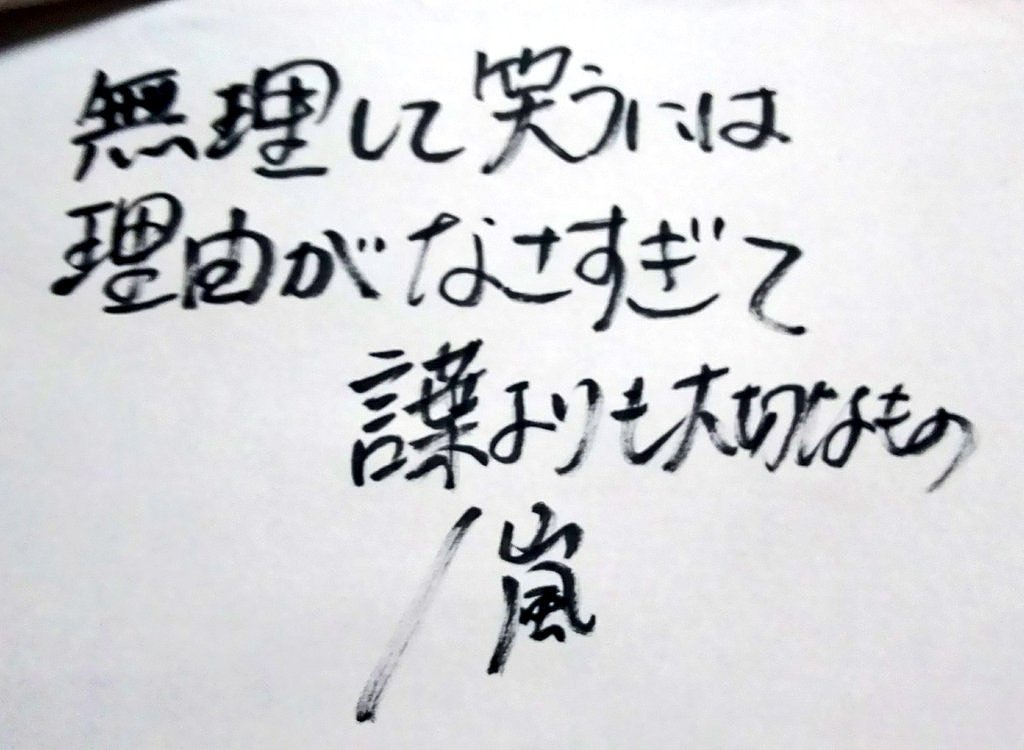 無理して笑うには
理由がなさすぎて
言葉よりも大切なもの
/嵐